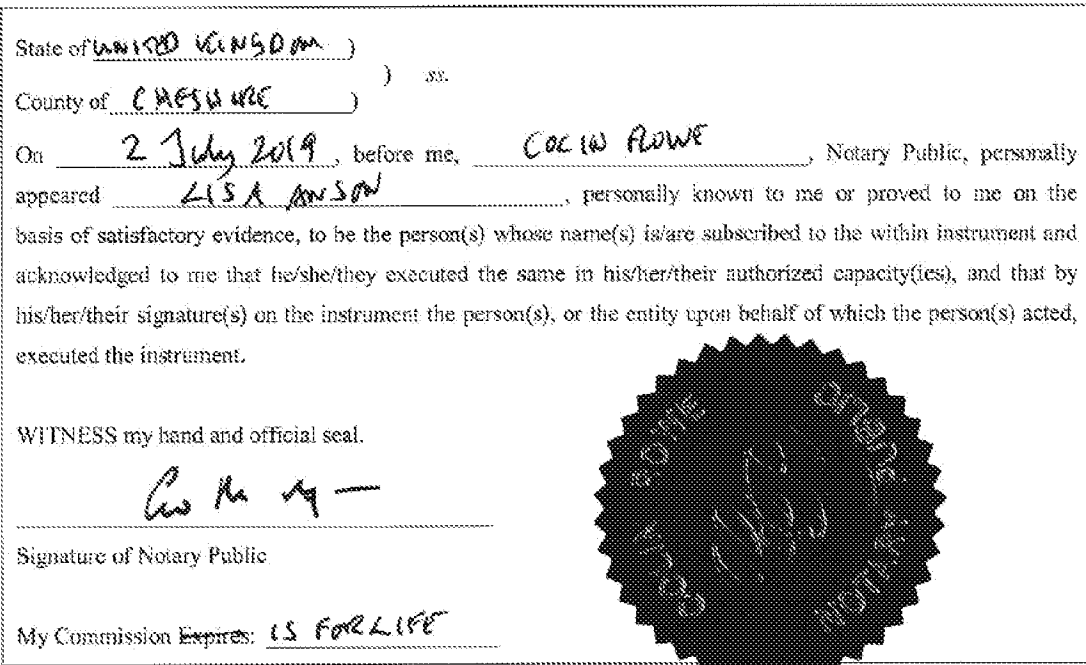 State of UNITED KINGDOM )
) ss.
County of CHESHIRE )
On 2 July 2019, before me, COLIN ROWE, Notary Public, personally
appeared LISA ANSON, personally known to me or proved to me on the
basis of satisfactory evidence, to be the person(s) whose name(s) is/are subscribed to the within instrument and
acknowledged to me that he/she/they executed the same in his/her/their authorized capacity(ies), and that by
his/her/their signature(s) on the instrument the person(s), or the entity upon behalf of which the person(s) acted,
executed the instrument.
WITNESS my hand and official seal.
Signature of Notary Public
My Commission Expires: IS FOR LIFE
NOTARY PUBLIC